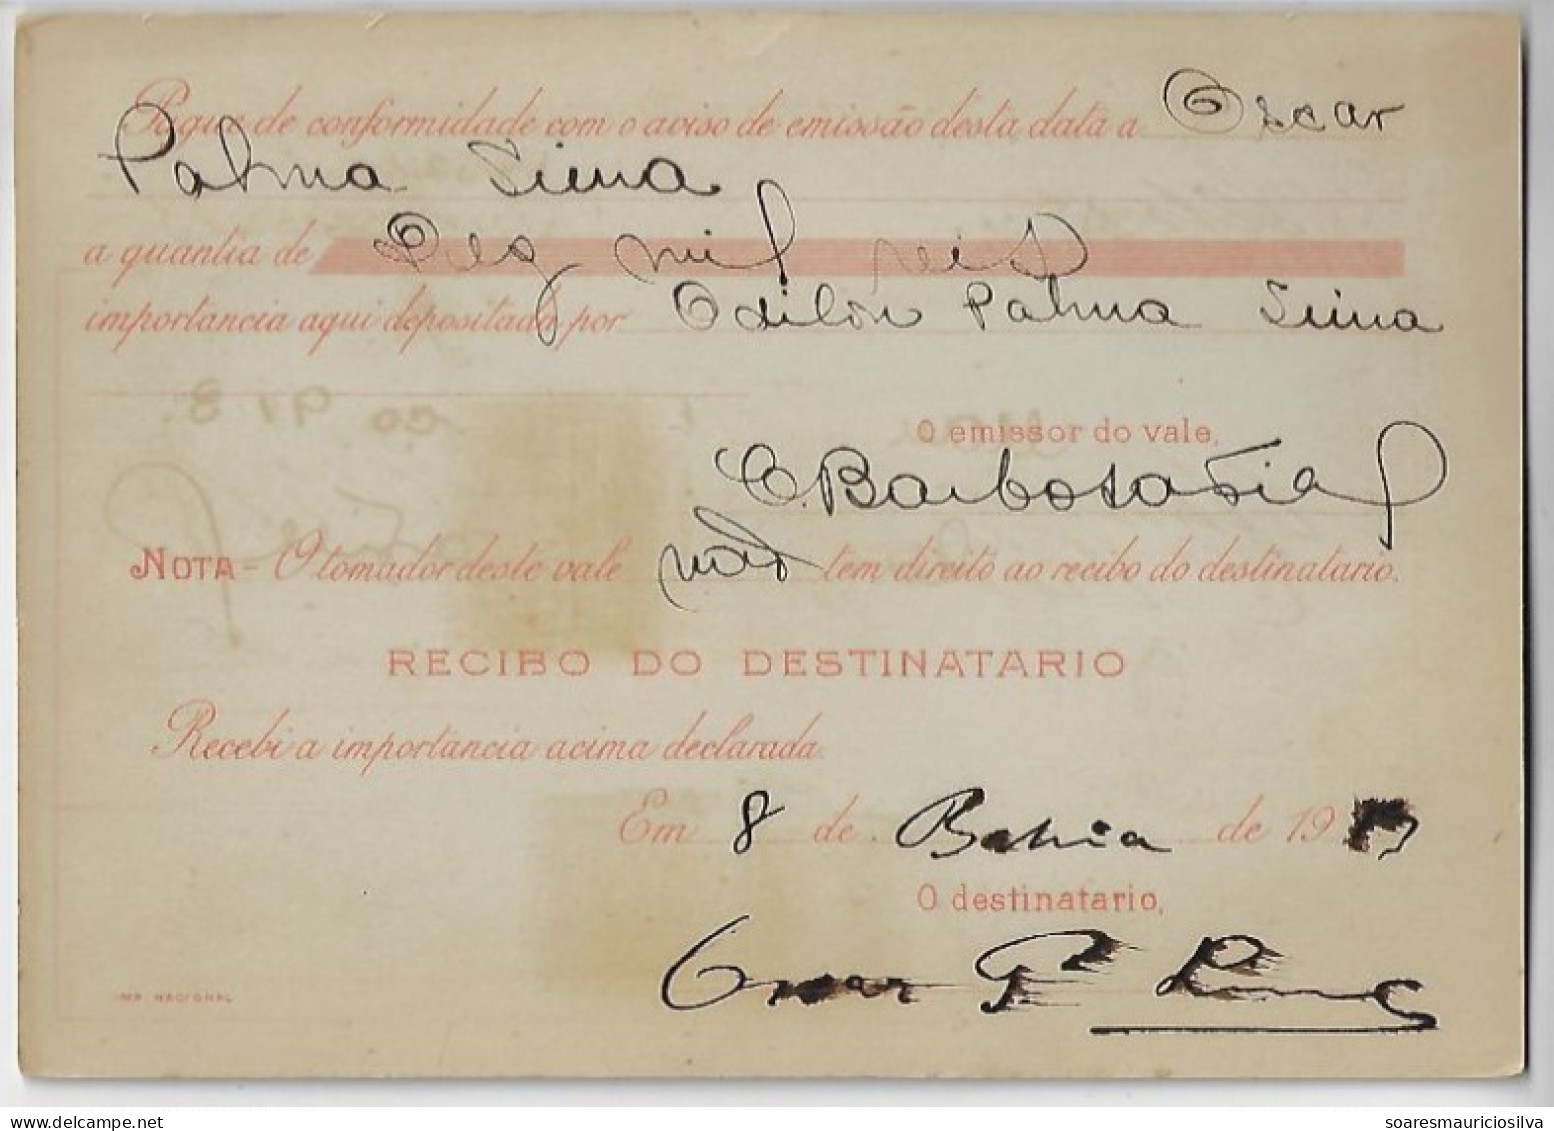 Pague de conformidade com o aviso de emissão desta data a Oscar
Palma Lima
a quantia de Dez mil reis
importancia aqui depositada por Odilon Palma Lima
O emissor do vale,
E. Barbosa
NOTA - O tomador deste vale não tem direito ao recibo do destinatario.
RECIBO DO DESTINATARIO
Recebi a importancia acima declarada.
Em 8 de Bahia de 19
O destinatario,
Oscar P. Lima
IMP. NACIONAL
soaresmauriciosilva